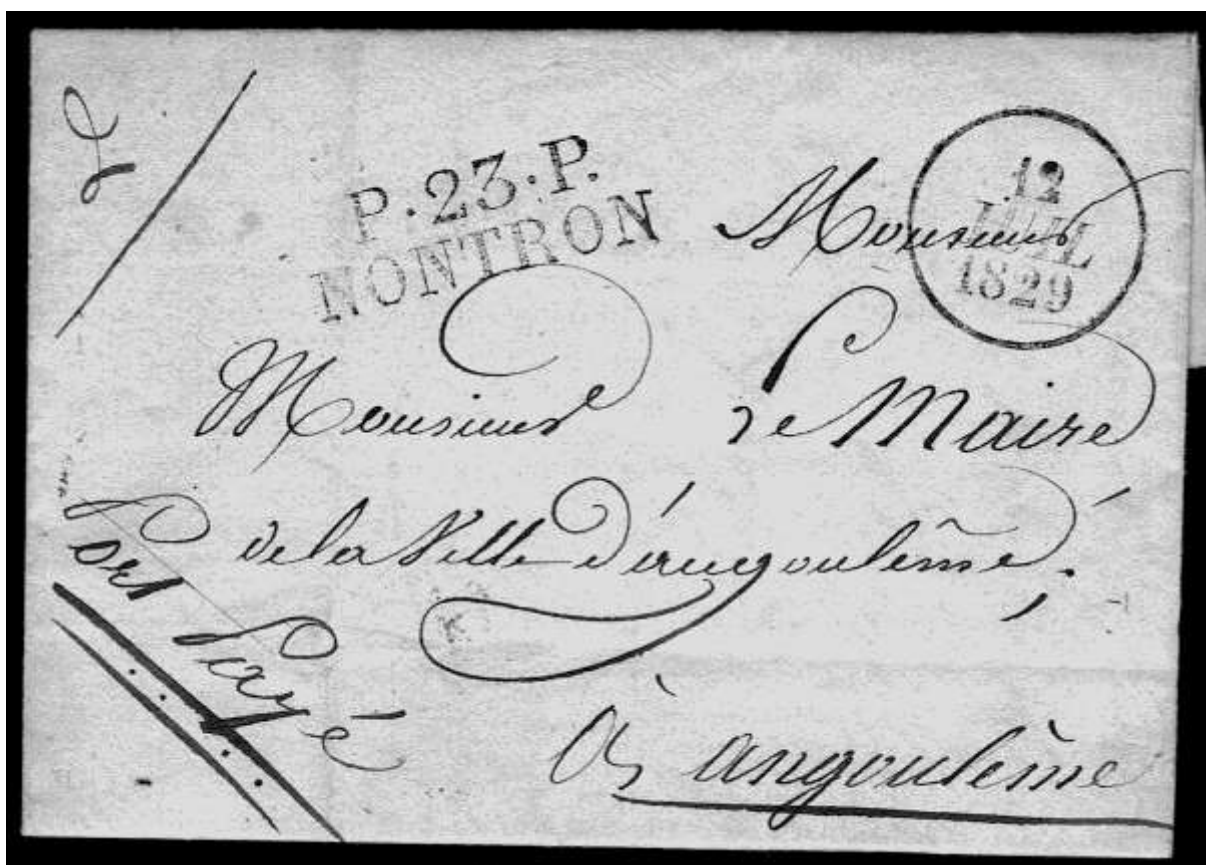 P.23.P.
NONTRON
12
JUIL
1829
Monsieur
Monsieur Le Maire
de la Ville d'angoulême
Port Payé
à angoulême